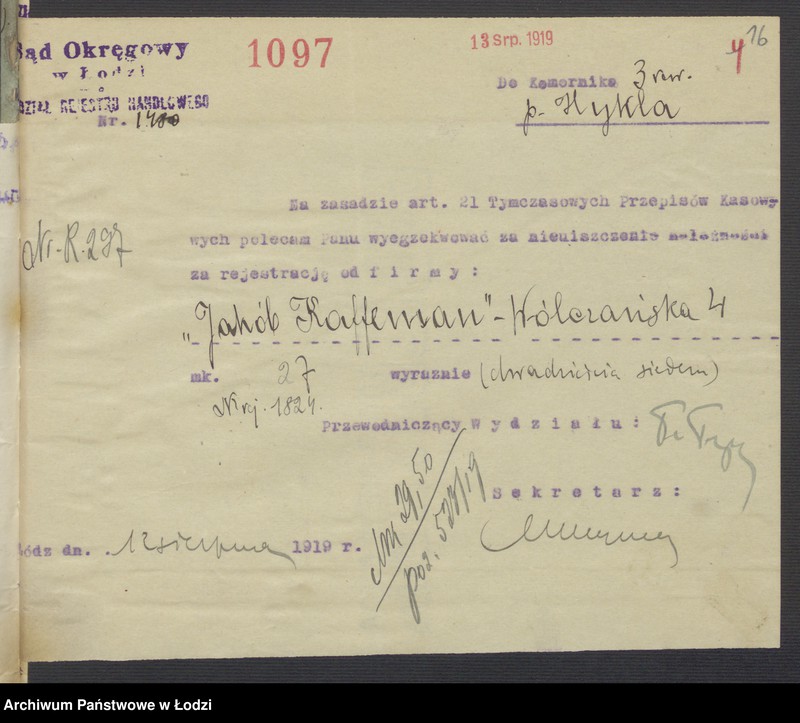 Sąd Okręgowy
w Łodzi
DZIAŁ REJESTRU HANDLOWEGO
Nr. 1480
1097
13 Srp. 1919
4
16
Do Komornika 3 rew.
p. Hykla
Nr. R. 297
Na zasadzie art. 21 Tymczasowych Przepisów Kasowy-
wych polecam Panu wyegzekwować za nieuiszczenie należności
za rejestrację od firmy:
„Jakób Kaffeman" - Wólczańska 4
mk. 27 wyraznie (dwadzieścia siedem)
Nr rej. 1824.
Przewodniczący Wydziału:
Sekretarz:
Mk 29,50
poz. 528/19
Łódz dn. 12 sierpnia 1919 r.
Archiwum Państwowe w Łodzi